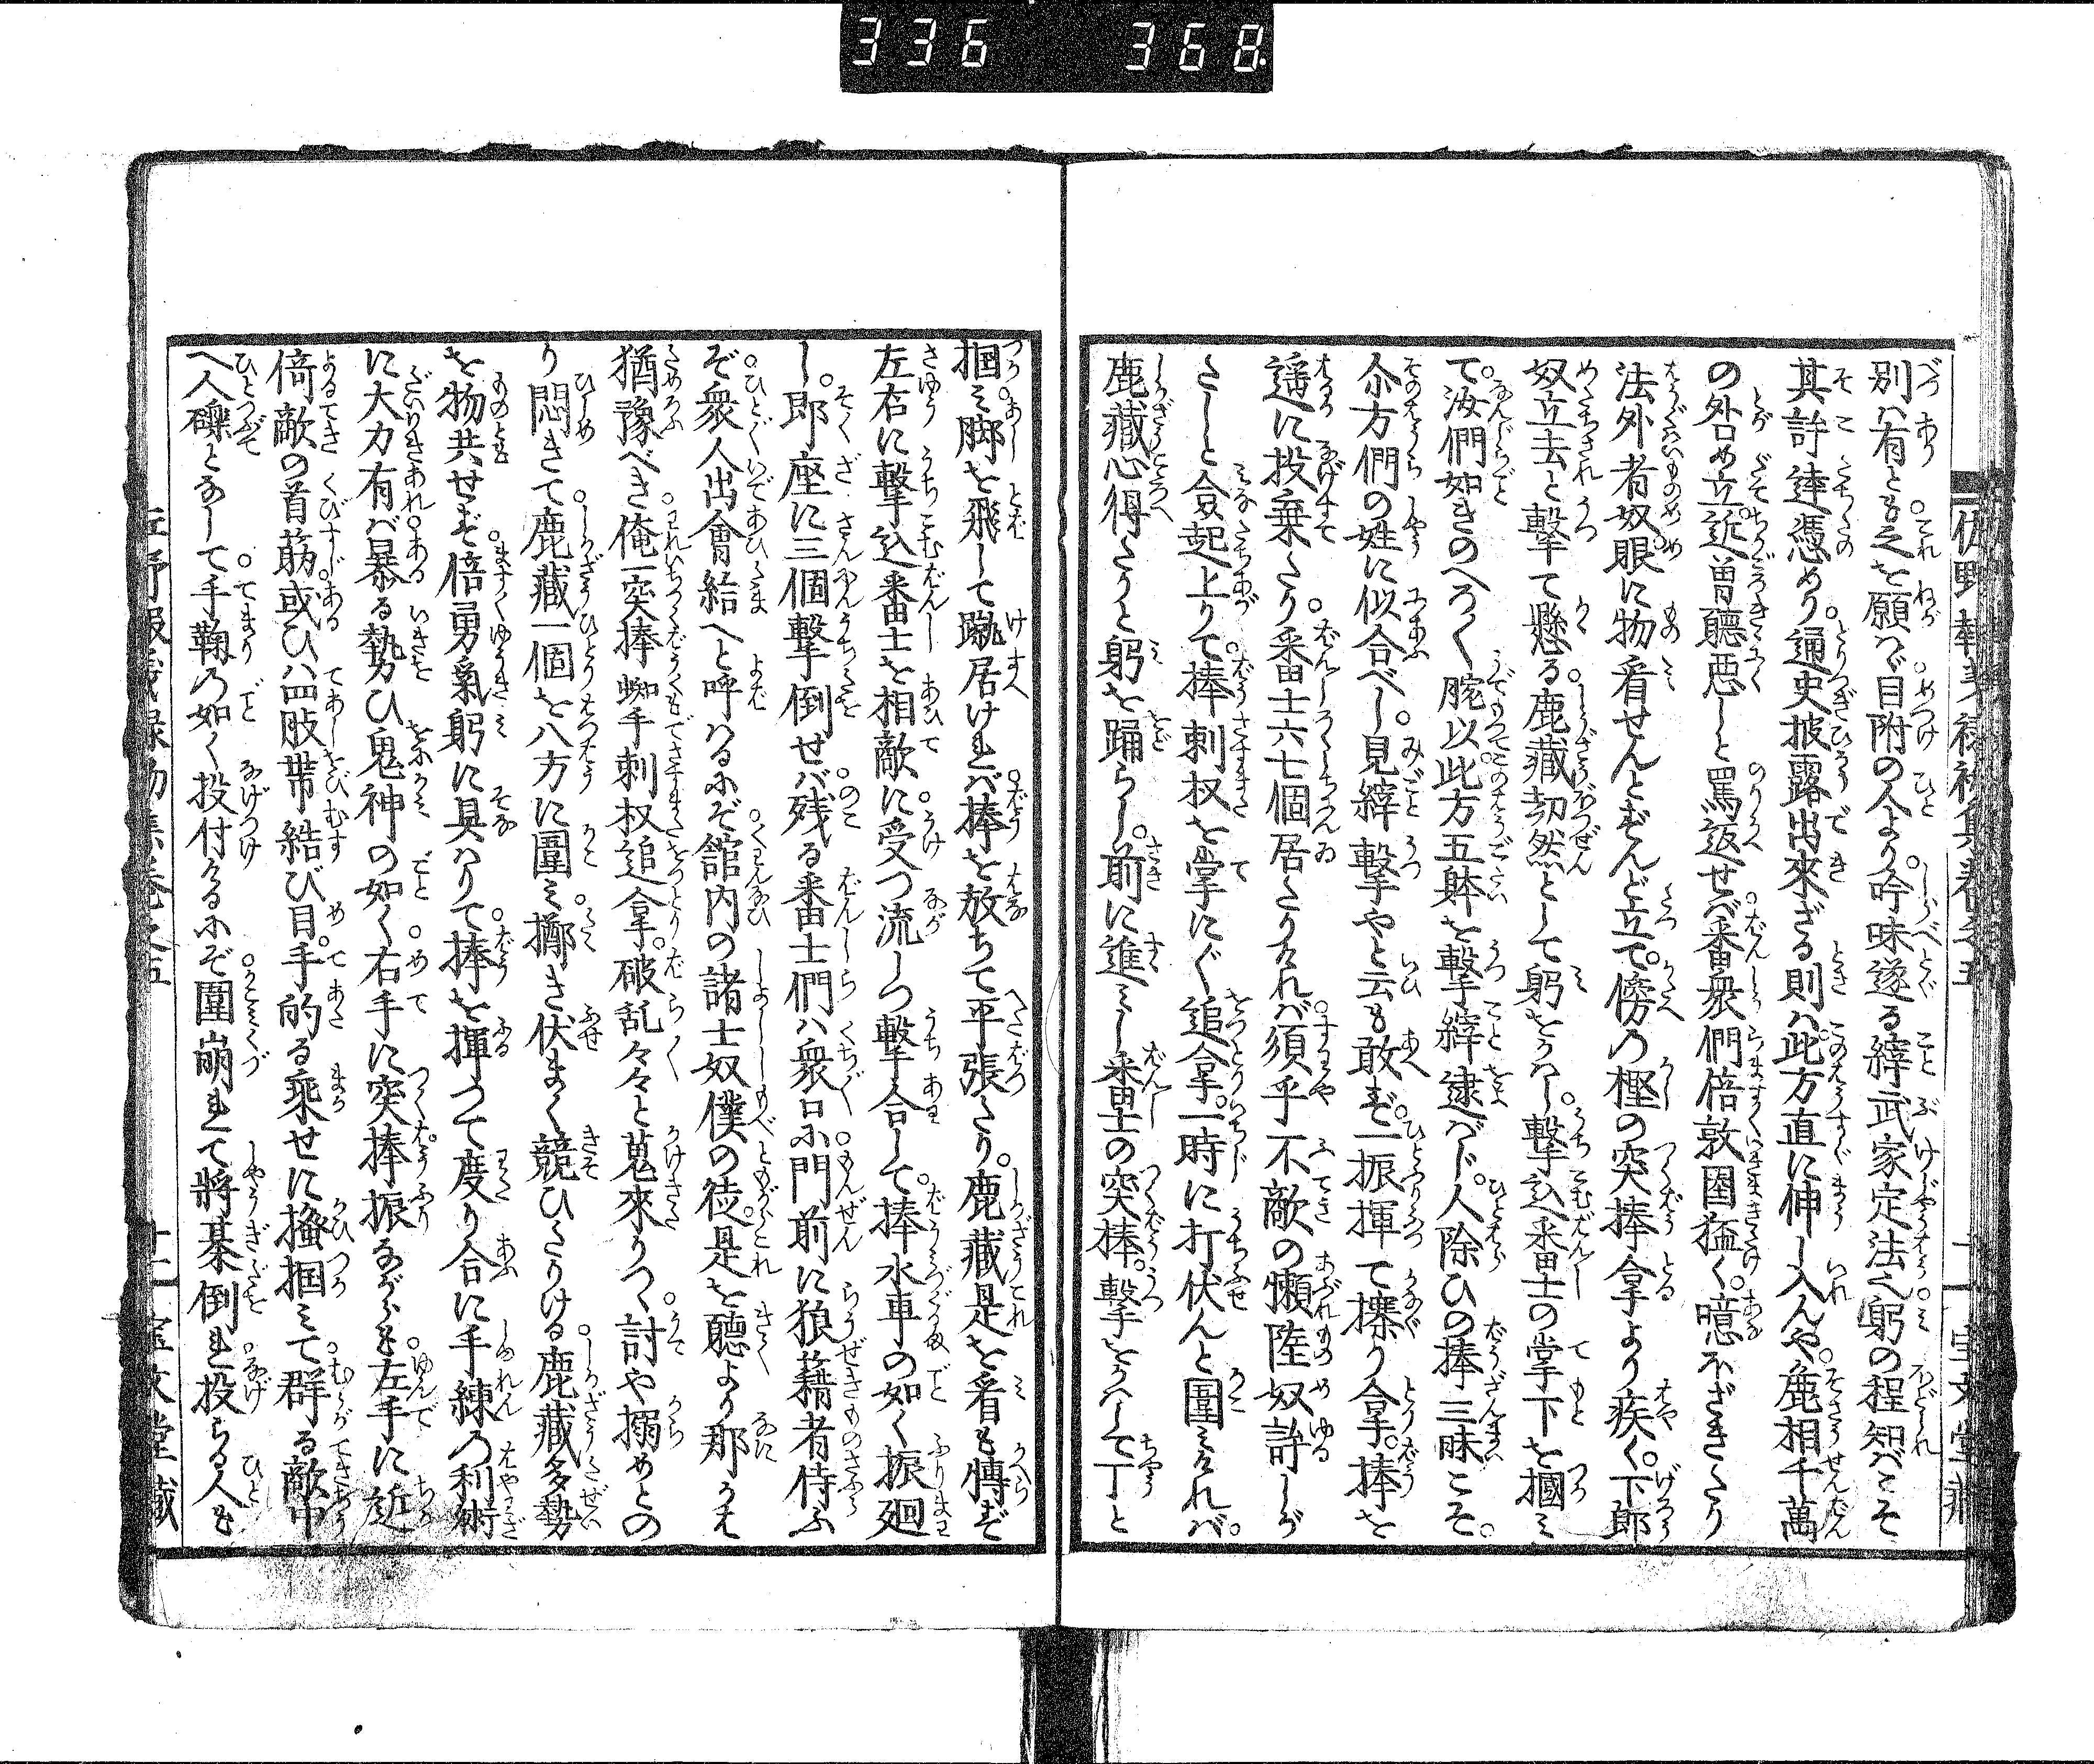 336 368
別は有とも之を願はゞ目附の人より吟味遂る縡武家定法之躬の程知ばこそ
其許達憑めり通史披露出來ざる則は此方直に伸し入んや麁相千萬
の外口め立近曽聽惡しと罵返せば番衆們倍敦圉猛く噫ふざきたり
法外者奴眼に物看せんとぞんど立て傍の樫の突捧拿より疾く下郎
奴立去と擊て懸る鹿藏刧然として躬をかはし擊込番士の掌下を摑み
て汝們如きのへろく腕以此方五躰を擊縡逮ばじ人除ひの捧三昧こそ
尒方們の姓に似合べし見縡擊やと云も敢ず一振揮て攥り合拿捧を
遥に投棄たり番士六七個居たりければ須乎不敵の懶陸奴許しが
たしと僉起上りて捧刺杈を掌にぐ追拿一時に打伏んと圍みければ
鹿藏心得たりと躬を踊らし前に進みし番士の突捧擊をかへして丁と
掴み脚を飛して蹴居ければ捧を放ちて平張たり鹿藏是を看も轉ず
左右に擊込番士を相敵に受つ流しつ擊合して捧水車の如く振廻
し郎座に三個擊倒せば残る番士們は衆口に門前に狼藉者侍ふ
ぞ衆人出會給へと呼はるにぞ舘内の諸士奴僕の徒是を聽より那かは
猶豫べき俺一突捧蜘手刺杈追拿破乱々々と蒐來りつ討や搦めとの
り悶きて鹿藏一個を八方に圍み擲き伏まく競ひたりける鹿藏多勢
を物共せず倍勇氣躬に具はりて捧を揮つて度り合に手練の利術
に大力有ば暴る勢ひ鬼神の如く右手に突捧振ながらも左手に近
倚敵の首筋或ひは四肢帯結び目手的る乘せに搔掴みて群る敵中
へ人礫となして手鞠の如く投付けるにぞ圍崩れて將棊倒れ投らる人も
十二 寳文堂藏